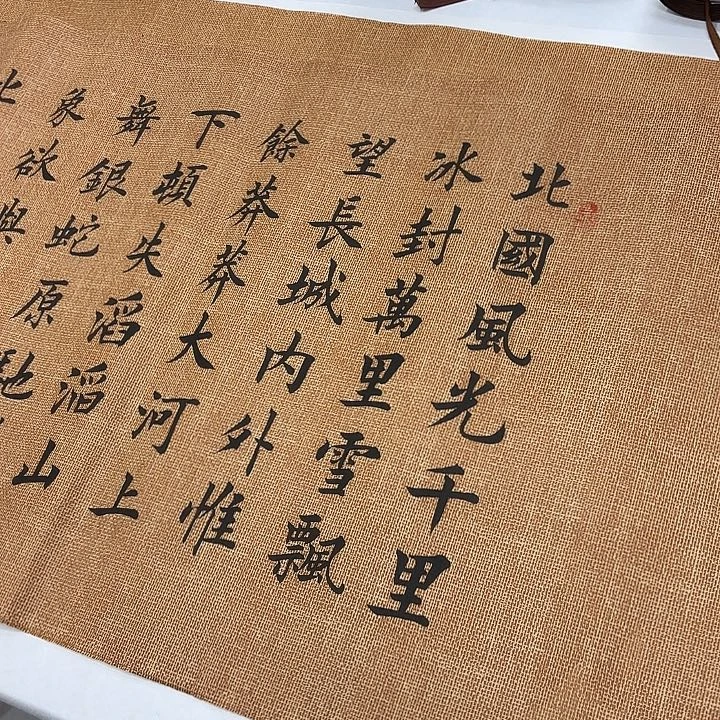 北國風光千里
冰封萬里雪飄
望長城内外惟
餘莽莽大河上
下頓失滔滔山
舞銀蛇原馳
象欲與